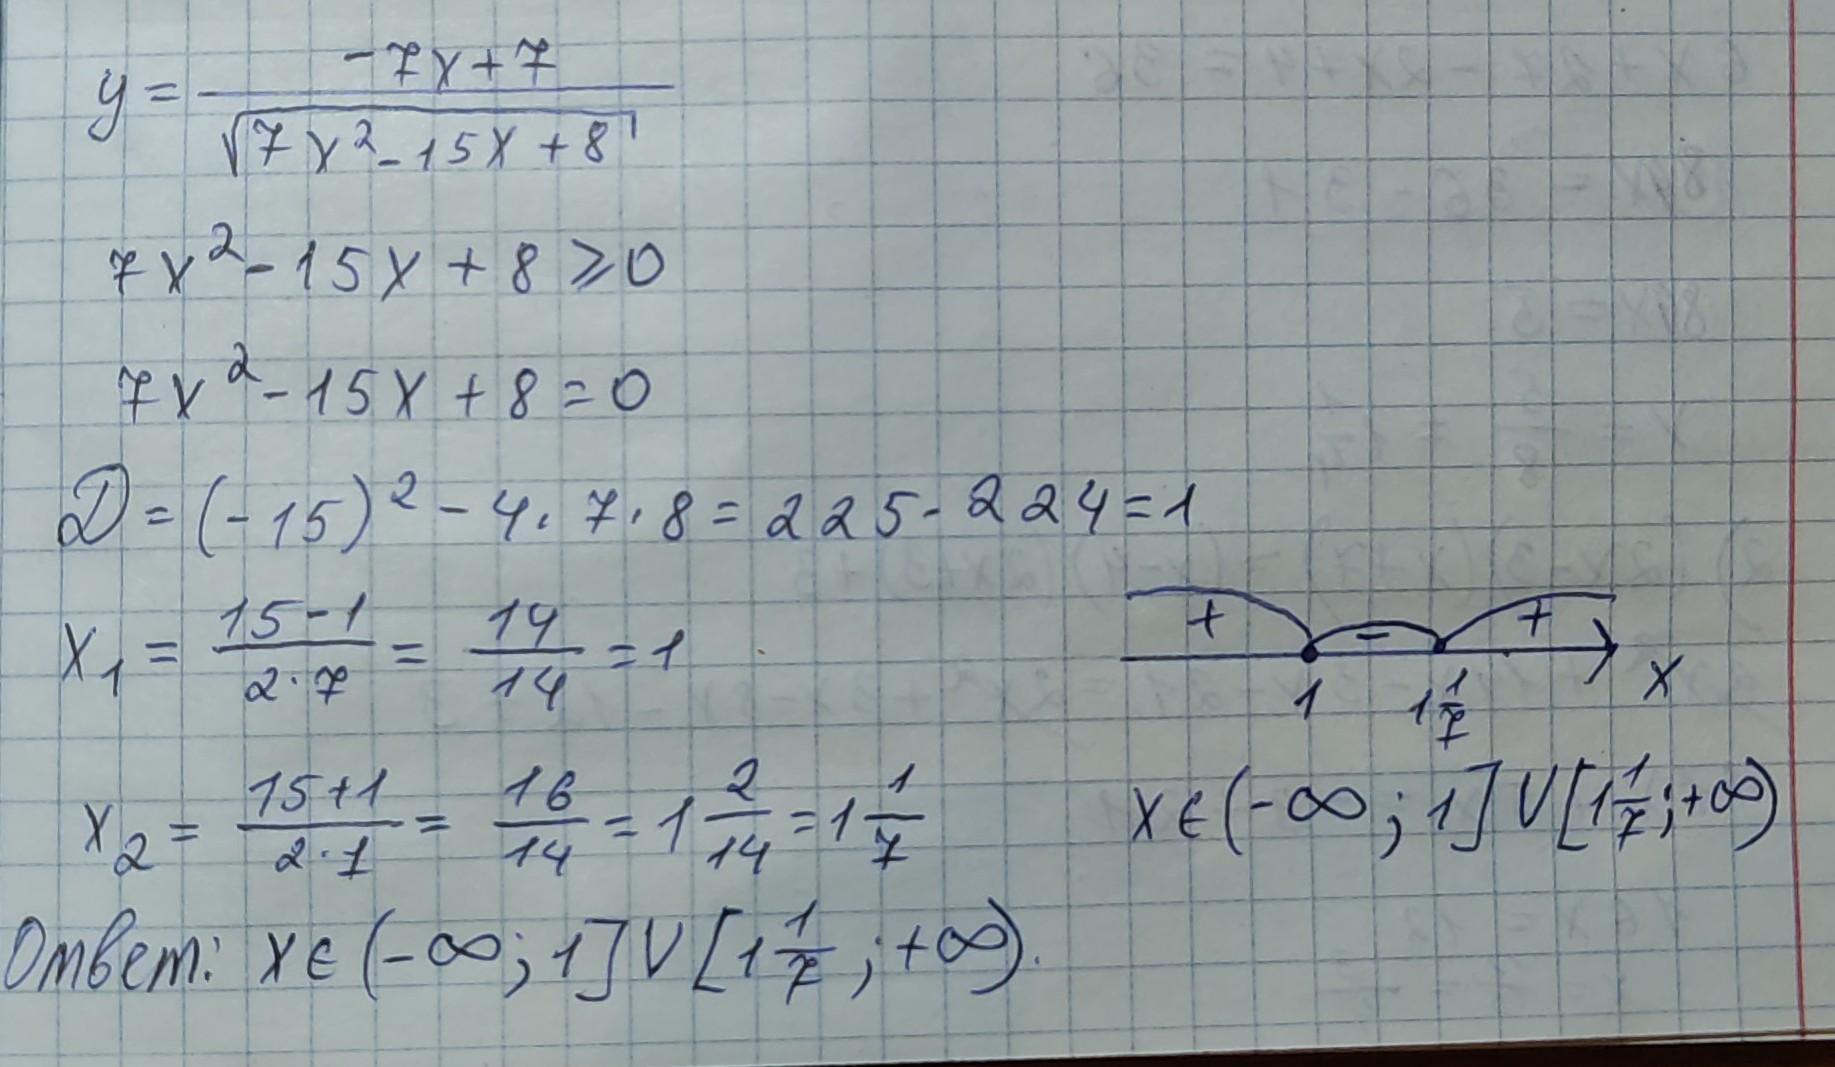 y = \frac{-7x+7}{\sqrt{7x^2-15x+8}}
7x^2 - 15x + 8 ⩾ 0
7x^2 - 15x + 8 = 0
D = (-15)^2 - 4 · 7 · 8 = 225 - 224 = 1
x_1 = \frac{15-1}{2·7} = \frac{14}{14} = 1
+ - +
1 1\frac{1}{7} x
x_2 = \frac{15+1}{2·7} = \frac{16}{14} = 1\frac{2}{14} = 1\frac{1}{7}
x ∈ (-∞; 1] ∪ [1\frac{1}{7}; +∞)
Ответ: x ∈ (-∞; 1] ∪ [1\frac{1}{7}; +∞).